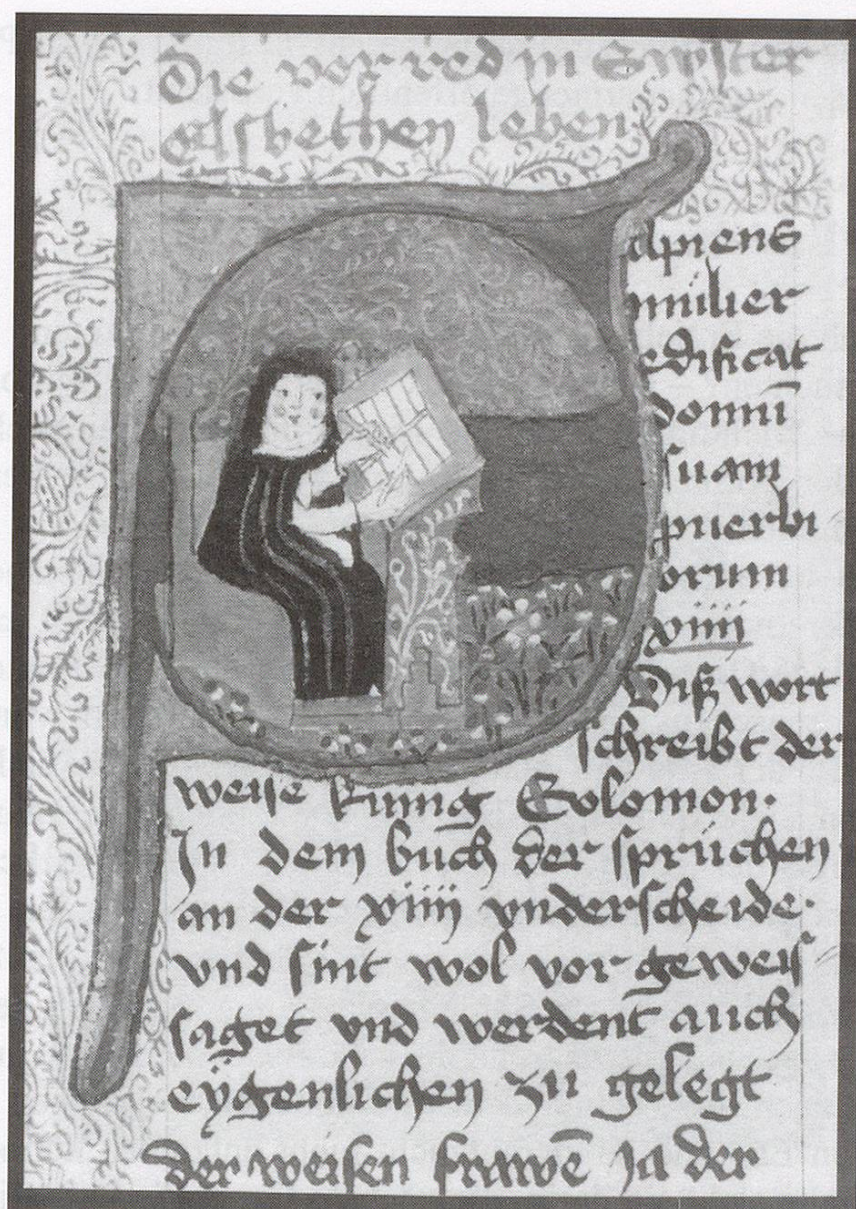 Die vor red in Swster
elsbethen leben
Sapiens
mulier
edificat
domū
suam
puerbi
orum
xiiii
Diß wort
schreibt der
weise kunig Solomon.
In dem buch der sprüchen
an der xiiii vnderscheide.
vnd sint wol vor geweis
saget vnd werdent auch
eÿgenlichen zu gelegt
der weisen frawē Ja der